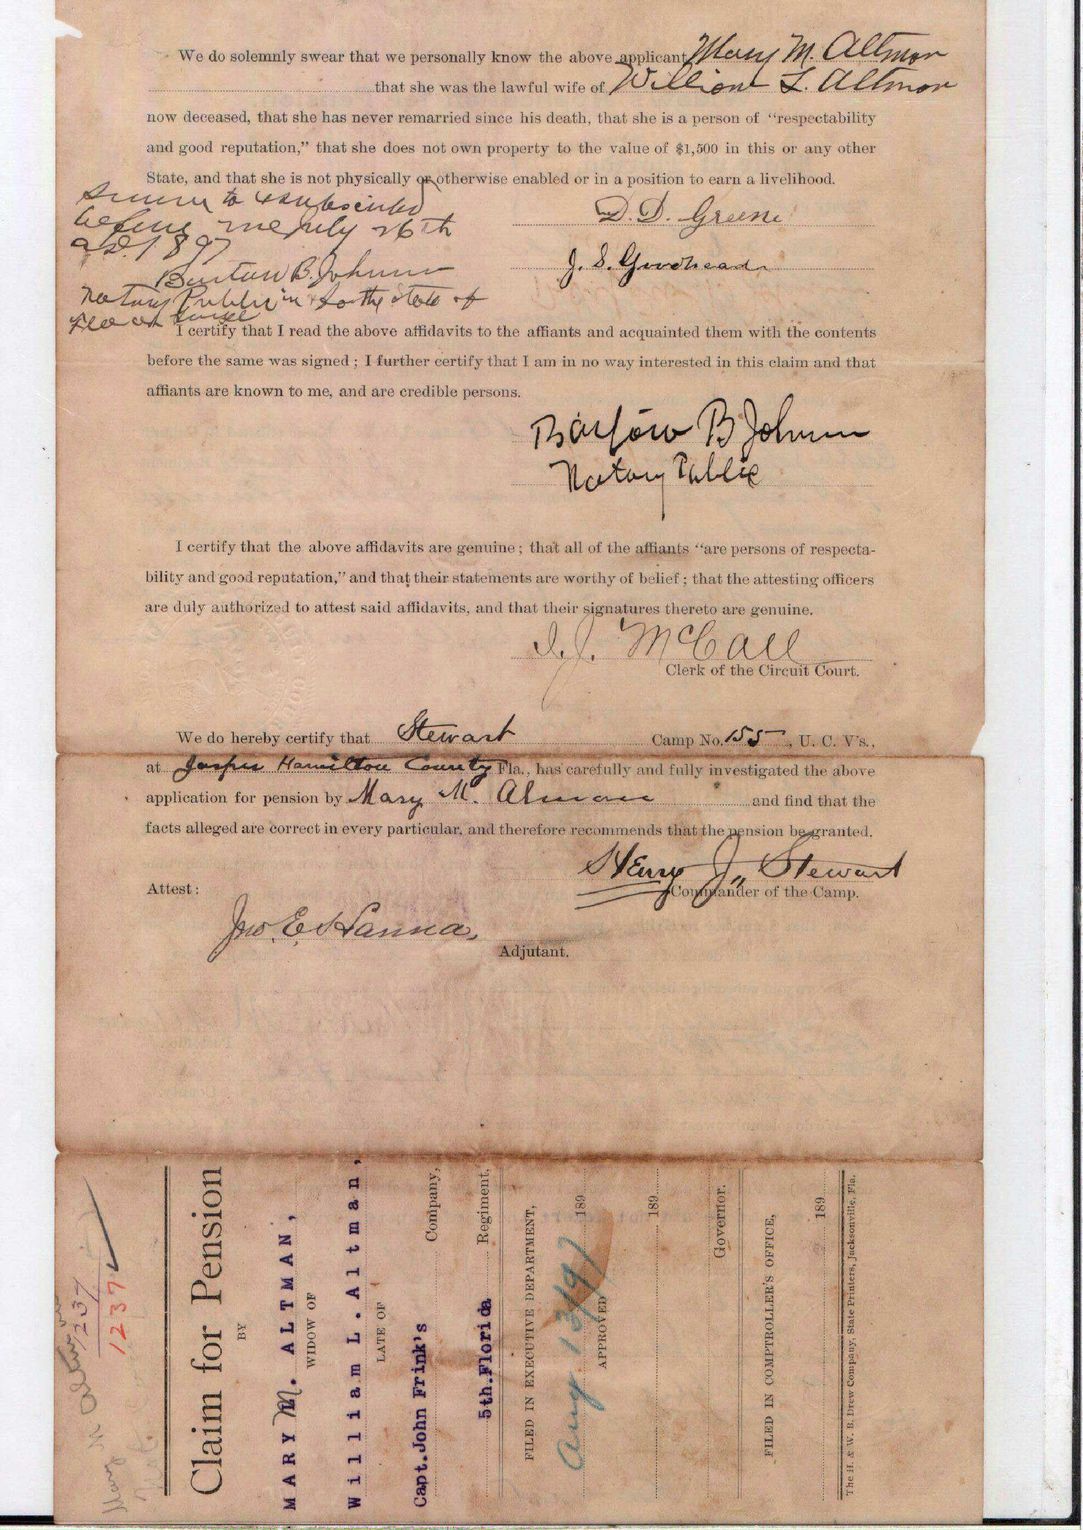 We do solemnly swear that we personally know the above applicant Mary M. Altman
that she was the lawful wife of William L. Altman
now deceased, that she has never remarried since his death, that she is a person of "respectability
and good reputation," that she does not own property to the value of $1,500 in this or any other
State, and that she is not physically or otherwise enabled or in a position to earn a livelihood.
Sworn to & subscribed
before me July 26th
a.d. 1897
D. D. Greene
J. S. Goodhead
Barton B. Johnson
Notary Public in & for the state of
Fla at large
I certify that I read the above affidavits to the affiants and acquainted them with the contents
before the same was signed; I further certify that I am in no way interested in this claim and that
affiants are known to me, and are credible persons.
B Johnson
Notary Public
I certify that the above affidavits are genuine; that all of the affiants "are persons of respecta-
bility and good reputation," and that their statements are worthy of belief; that the attesting officers
are duly authorized to attest said affidavits, and that their signatures thereto are genuine.
J. McCall
Clerk of the Circuit Court.
We do hereby certify that Stewart Camp No. 155, U. C. V's.,
at Jasper Hamilton County Fla., has carefully and fully investigated the above
application for pension by Mary M. Alman and find that the
facts alleged are correct in every particular, and therefore recommends that the pension be granted.
Henry J. Stewart
Commander of the Camp.
Attest:
Jno. E. Hanna,
Adjutant.
Mary M Altman
1237
1237
Claim for Pension
BY
MARY M. ALTMAN,
WIDOW OF
William L. Altman,
LATE OF
Capt. John Frink's Company,
5th. Florida Regiment.
FILED IN EXECUTIVE DEPARTMENT,
Aug 13/97 189
APPROVED 189
Governor.
FILED IN COMPTROLLER'S OFFICE,
189
The H. & W. B. Drew Company, State Printers, Jacksonville, Fla.